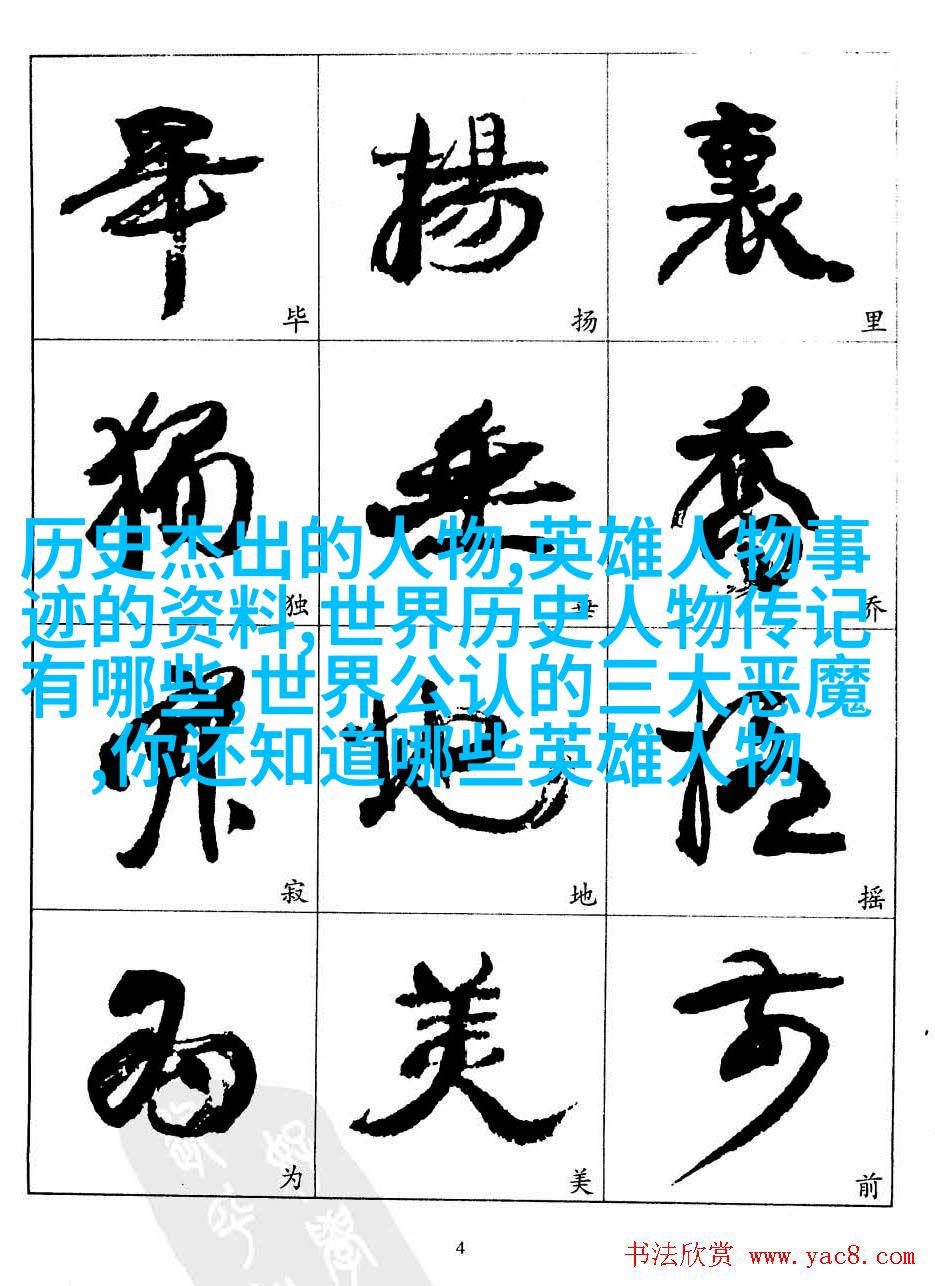 毕 扬 里
畢 揚 裏
独 垂 乔
獨 垂 喬
历史杰出的人物,英雄人物事
迹的资料,世界历史人物传记
有哪些,世界公认的三大恶魔
,你还知道哪些英雄人物
寂 地 摇
寂 地 摇
为 美 前
为 美 前
4
书法欣赏 www.yac8.com